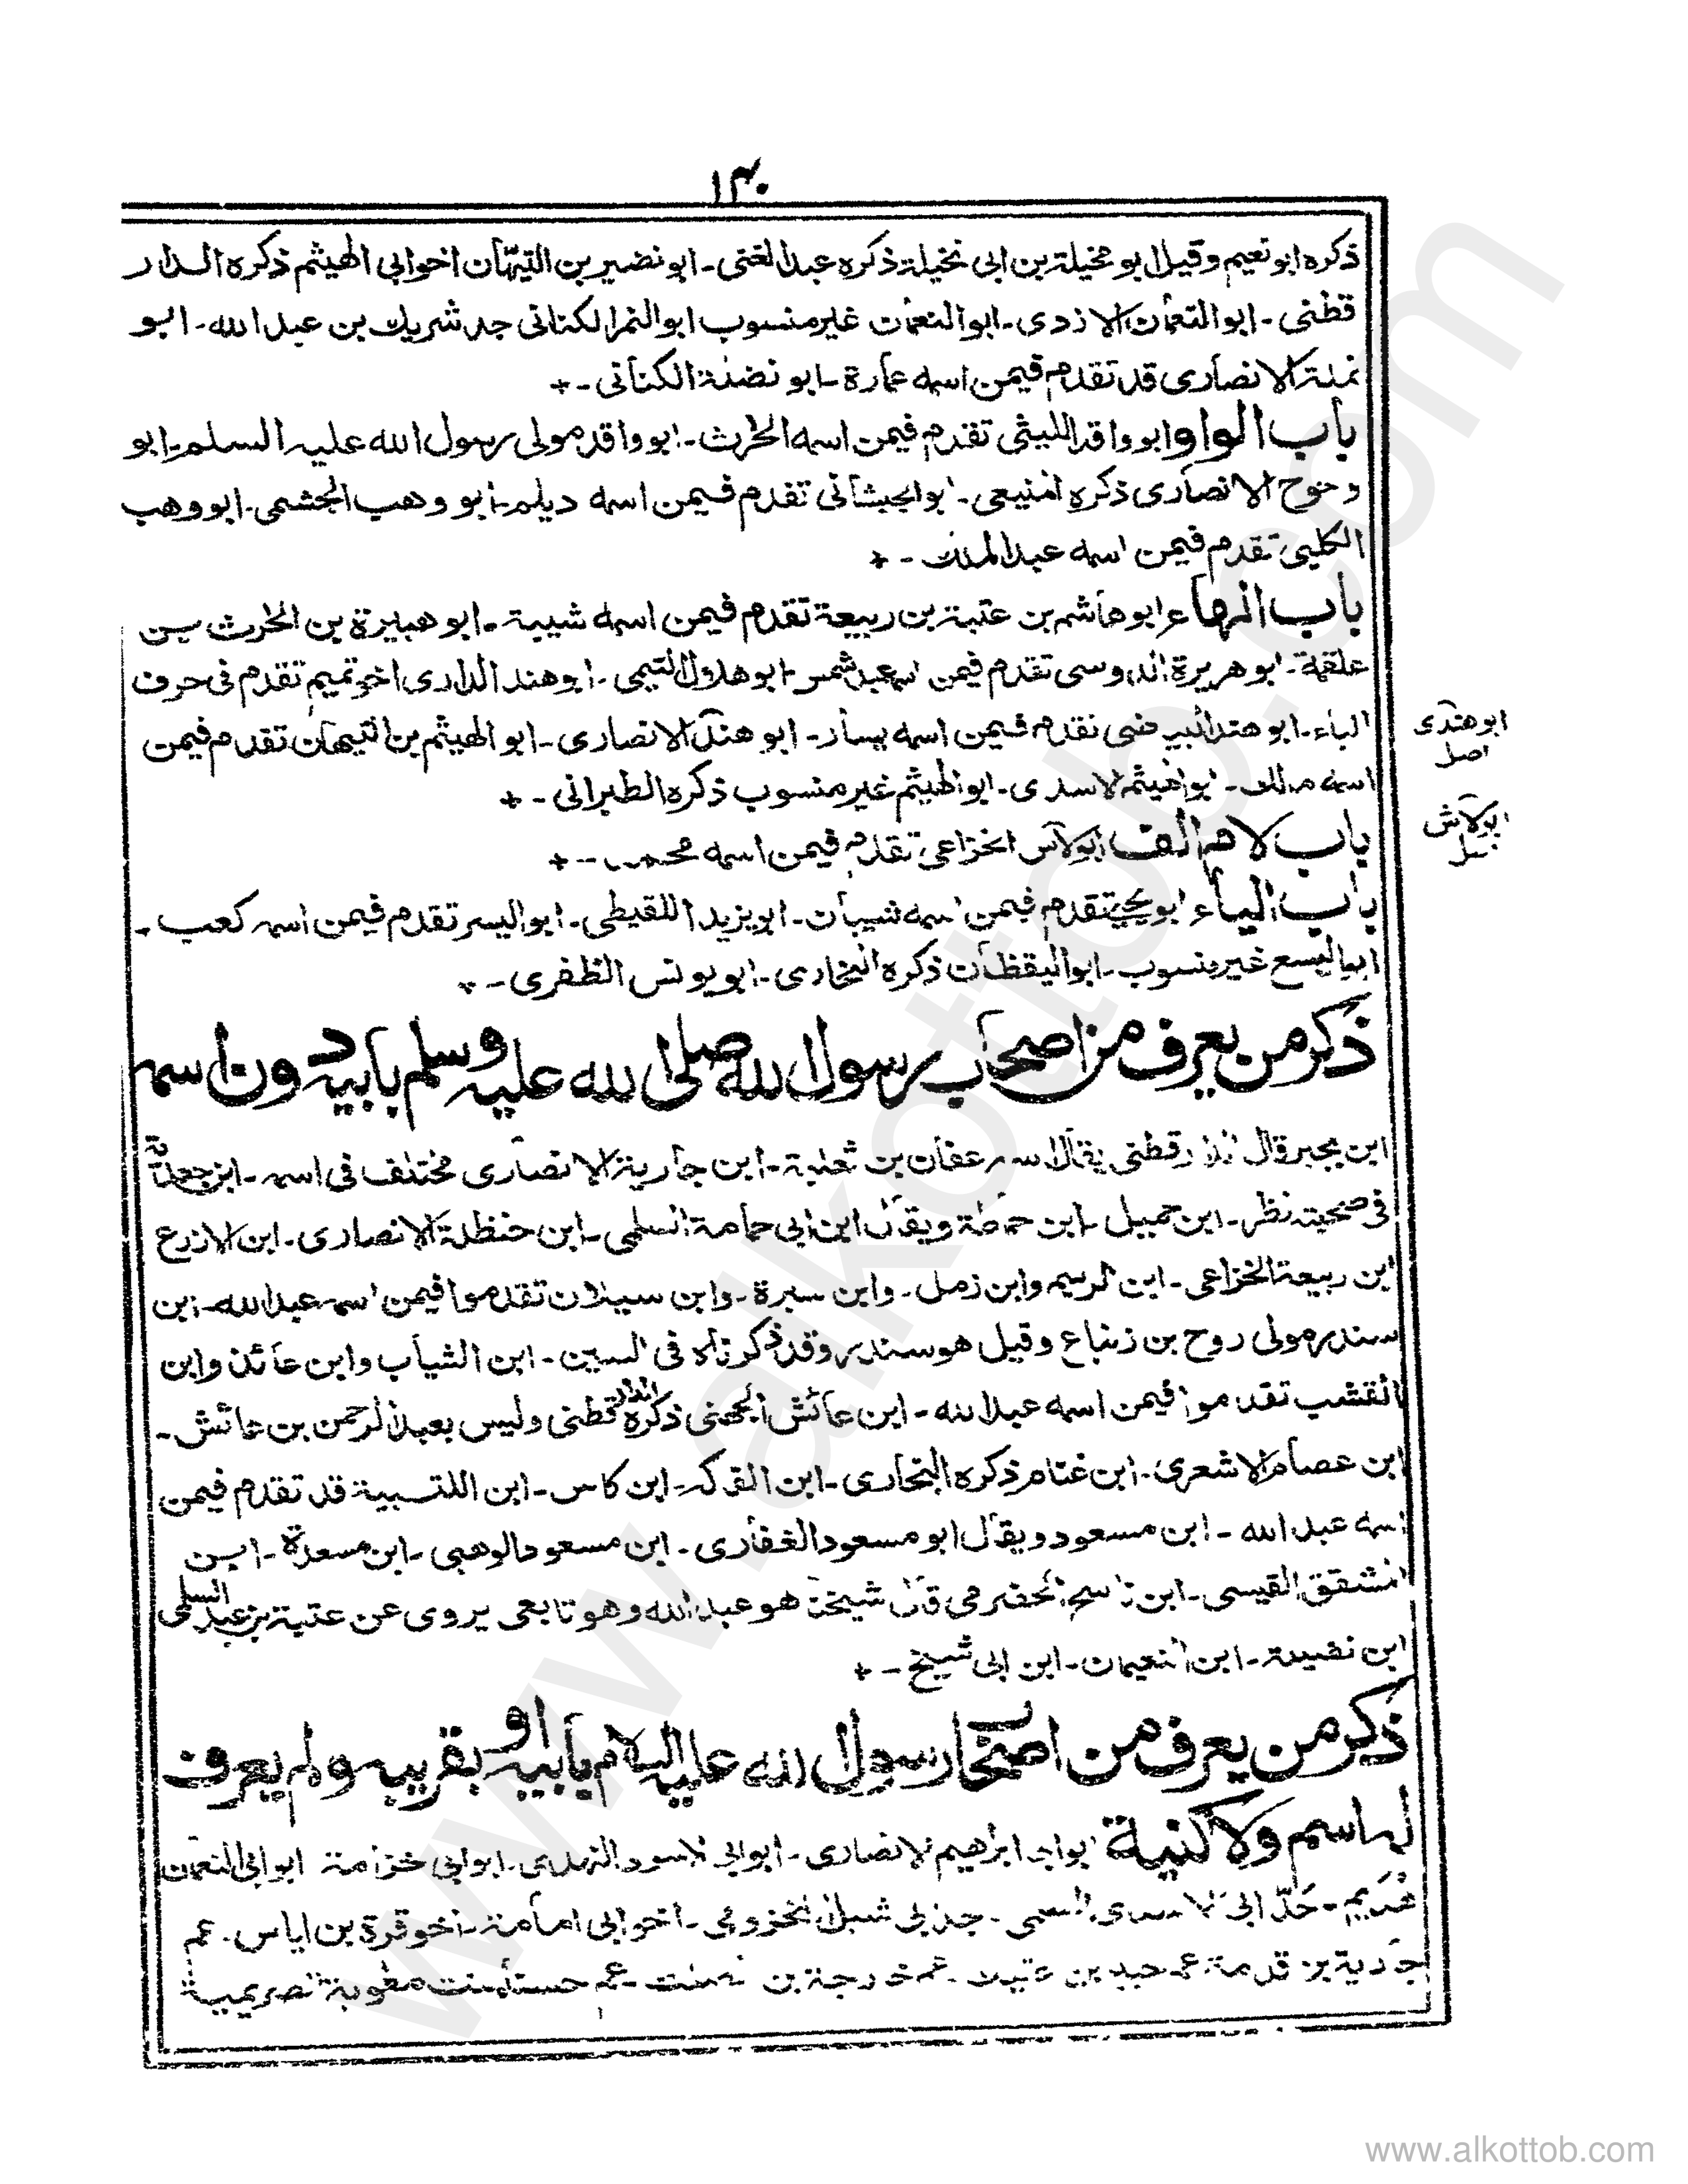 ١٤٠
ذكره ابو نعيم وقيل ابو نخيلة بن ابى نخيلة ذكره عبد الغنى ـ ابو نضير بن التيهان اخو ابى الهيثم ذكره الدار
قطنى ـ ابو النعمان الازدى ـ ابو النعمان غير منسوب ابو النمر الكنانى جد شريك بن عبد الله ـ ابو
نملة الانصارى قد تقدم فيمن اسمه عمارة ـ ابو نضلة الكنانى ـ +
باب الواو ابو واقد الليثى تقدم فيمن اسمه الحرث ـ ابو واقد مولى رسول الله عليه السلم ـ ابو
وحوح الانصارى ذكره المنيعى ـ ابو الجيشانى تقدم فيمن اسمه ديلم ـ ابو وهب الجشمى ـ ابو وهب
الكلبى تقدم فيمن اسمه عبد الملك ـ +
باب الهاء ابو هاشم بن عتبة بن ربيعة تقدم فيمن اسمه شيبة ـ ابو هبيرة بن الحرث بن
علقمة ـ ابو هريرة الدوسى تقدم فيمن اسمه عبد شمس ـ ابو هلال التيمى ـ ابو هند الدارى اخو تميم تقدم فى حرف
الباء ـ ابو هند البياضى تقدم فيمن اسمه يسار ـ ابو هند الانصارى ـ ابو الهيثم بن التيهان تقدم فيمن
ابو هندى
اصل
اسمه مالك ـ ابو الهيثم الاسدى ـ ابو الهيثم غير منسوب ذكره الطبرانى ـ +
باب لام الف ابو لاس الخزاعى تقدم فيمن اسمه محمد ـ +
ابو لاش
اصل
باب الياء ابو يحيى تقدم فيمن اسمه شيبان ـ ابو يزيد اللقيطى ـ ابو اليسر تقدم فيمن اسمه كعب ـ
ابو اليسع غير منسوب ـ ابو اليقظان ذكره البخارى ـ ابو يونس الظفرى ـ +
ذكر من يعرف من اصحاب رسول الله صلى الله عليه وسلم بابيه دون اسمه
ابن بجير قال الدارقطنى يقال اسمه عفان بن ثعلبة ـ ابن جارية الانصارى مختلف فى اسمه ـ ابن جعدبة
فى صحبته نظر ـ ابن جميل ـ ابن حماطة ويقال ابن ابى حمامة السلمى ـ ابن حنظلة الانصارى ـ ابن الادرع
ابن ربيعة الخزاعى ـ ابن الرسيم وابن زمل ـ وابن سبرة ـ وابن سيلان تقدموا فيمن اسمه عبد الله ـ ابن
سندر مولى روح بن زنباع وقيل هو سندر وقد ذكرناه فى السين ـ ابن الشياب وابن عائذ وابن
القشب تقدموا فيمن اسمه عبد الله ـ ابن عائش الجهنى ذكره الدارقطنى وليس بعبد الرحمن بن عائش ـ
ابن عصام الاشعرى ـ ابن غنام ذكره البخارى ـ ابن الفراكه ـ ابن كاس ـ ابن اللتبية قد تقدم فيمن
اسمه عبد الله ـ ابن مسعود ويقال ابو مسعود الغفارى ـ ابن مسعود الوهبى ـ ابن مسعدة ـ ابن
المنتفق القيسى ـ ابن ناسح الحضرمى قال شيخنا هو عبد الله وهو تابعى يروى عن عتبة بن عبد السلمى
ابن نضيلة ـ ابن النعمان ـ ابن ابى شيخ ـ +
ذكر من يعرف من اصحاب رسول الله عليه السلام بابيه او بقريبه ولم يعرف
له اسم ولا كنية ابو ابراهيم الانصارى ـ ابو ابى الاسود النهدى ـ ابو ابى خزامة ابو ابى النعمان
جد ابى الاسد السلمى ـ جد ابى شبل المخزومى ـ اخو ابى امامة ـ اخو قرة بن اياس ـ عم
جارية بن قدامة عم بن ـ عم خارجة بن الصلت ـ عم حسناء بنت معاوية الصريمية
www.alkottob.com